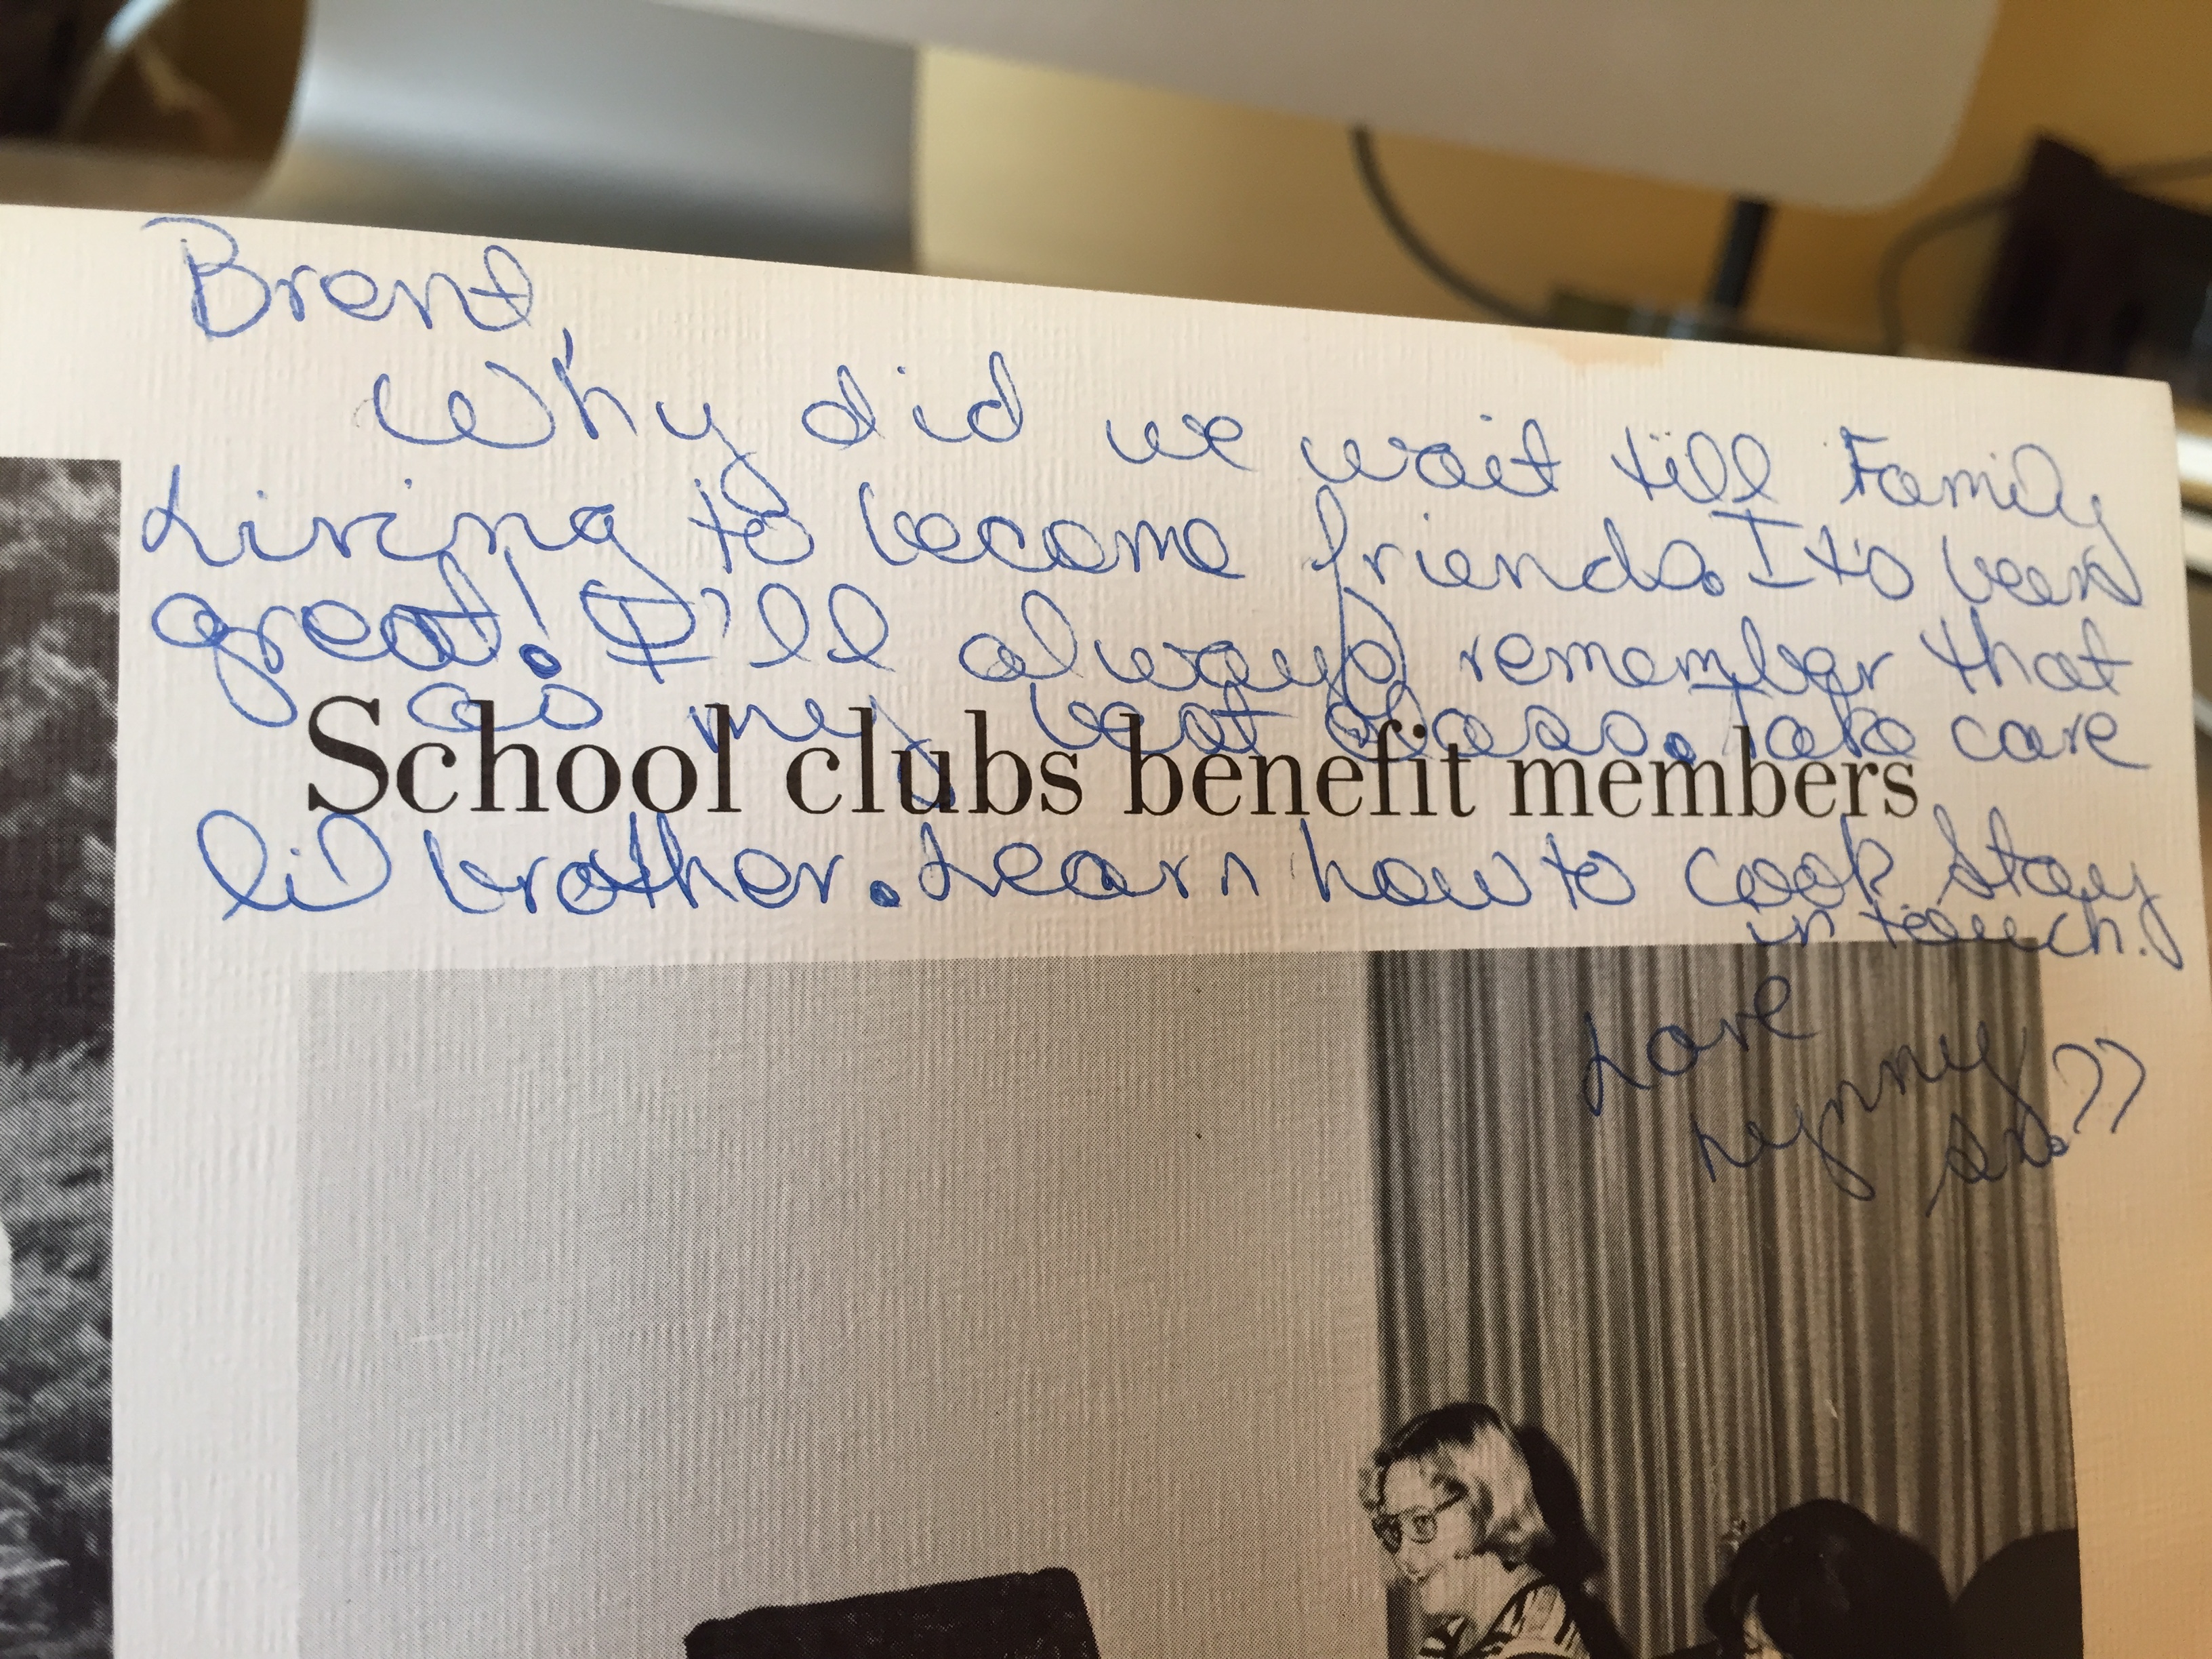 Brent,
Why did we wait till Family
Living to become friends. It's been
great! I'll always remember that
as my best class. Take care
School clubs benefit members
lil brother. Learn how to cook Stay
in touch.
Love
Lynny